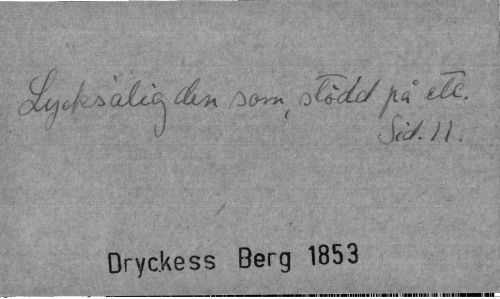 Lycksälig den som, stödd på etc.
Sid. 11.
Dryckess Berg 1853